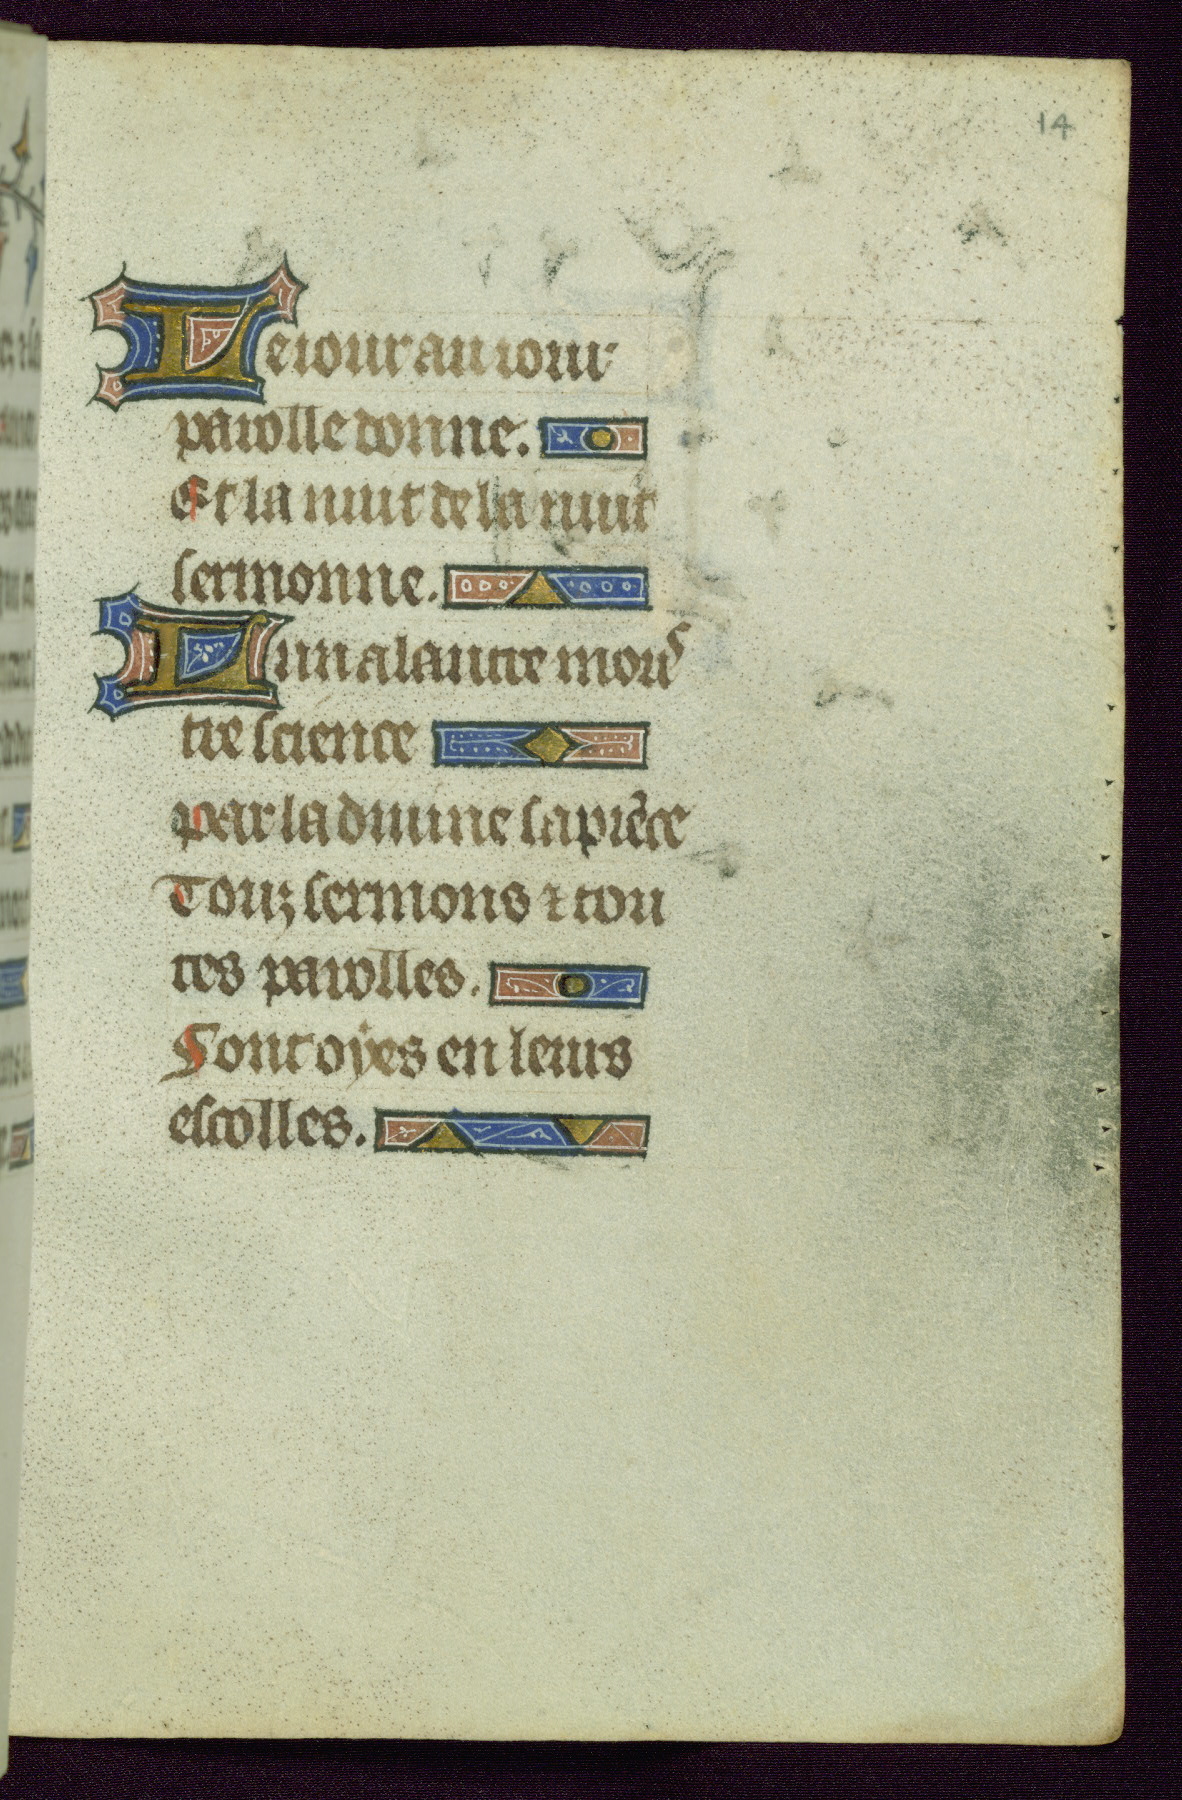 14
Le iour au iour
parolle donne.
Et la nuit de la nuit
sermonne.
Lun a lautre mous
tre science
par la diuine sapiẽce
Touz sermons ⁊ tou
tes parolles.
Sont oyes en leurs
escolles.